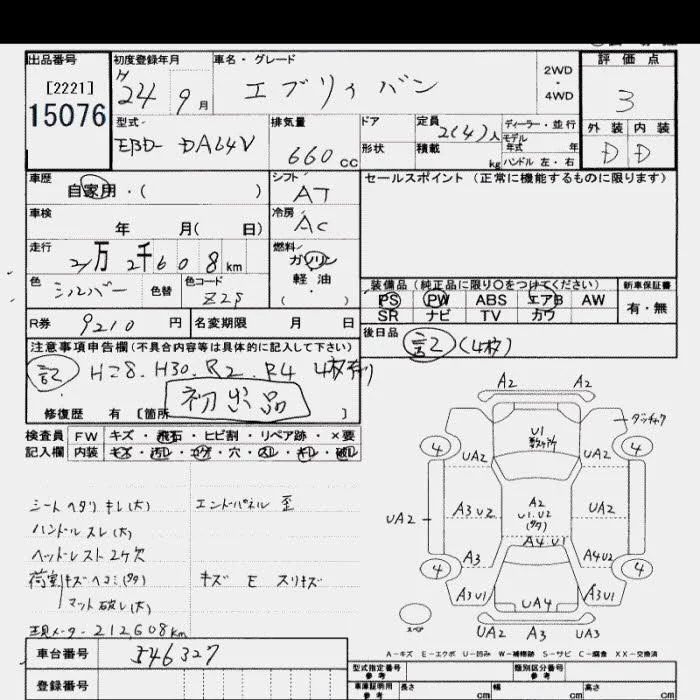 出品番号 初度登録年月 車名・グレード 評価点
[2221] 15076
H 24 9月 エブリィバン 2WD・4WD 3
外装 内装
D D
型式 EBD-DA64V 排気量 660cc
ドア 定員 2(4)人 ディーラー・並行
形状 積載 kg モデル年式 年
ハンドル 左・右
車歴 自家用・( ) シフト AT
セールスポイント(正常に機能するものに限ります)
車検 年 月( 日) 冷房 AC
走行 21万2千608km 燃料 ガソリン
軽油・( )
色 シルバー 色替 色コード Z2S
装備品(純正品に限り〇をつけてください) 新車保証書
PS PW ABS エアB AW 有・無
SR ナビ TV カワ
R券 9210円 名変期限 月 日
後日品 記(4枚)
注意事項申告欄(不具合内容等は具体的に記入して下さい)
記 H28.H30.R2.R4 4枚有り
初出品
修復歴 有[箇所 ]
検査員 FW キズ・飛石・ヒビ割・リペア跡・×要
記入欄 内装 キズ・汚レ・コゲ・穴・スレ・キレ・破レ
シートヘタリキレ(大) エンドパネル歪
ハンドルスレ(大)
ヘッドレスト2ケ欠
荷室キズヘコミ(多) キズ E スリキズ
マット破レ(大)
現メーター212608km
A2 A2
U1
タッチアク
4 4
UA2 UA2
A3U2 A2 UA2
UA2 U1.U2 UA2
(多)
A4U1
A3 A4U2
4 4
A3U1 UA4 A3U1
スペア
UA2 A3 UA3
A-キズ E-エクボ U-凹み W-補修跡 S-サビ C-腐食 XX-交換済
車台番号 546327
登録番号
型式指定番号 参考 類別区分番号 参考
車庫証明用 参考 長さ cm 幅 cm 高さ cm